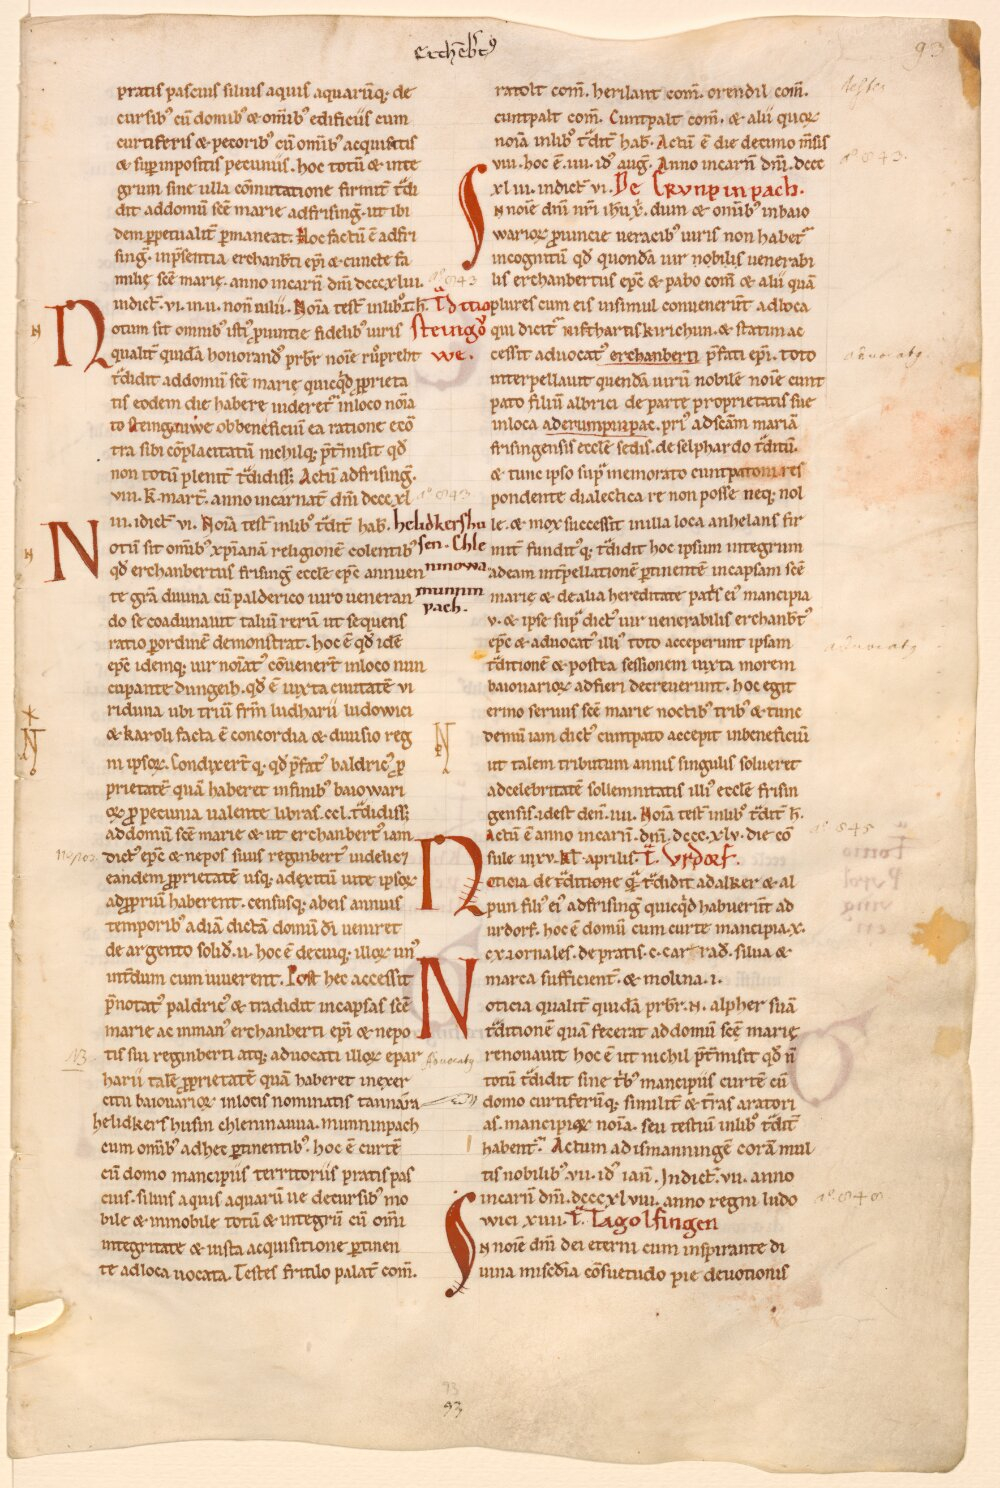 Erchēbtꝰ
93
pratis pascuis siluis aquis aquarūq; de
cursibꝰ cū domibꝰ & om̄ibꝰ edificiis cum
curtiferis & pecoribꝰ cū om̄ibꝰ acquisitis
& suꝑ inpositis pecuniis. hoc totū & inte
grum sine ulla cōmutatione firmit̄ t̄di
dit ad domū sc̄e marie ad frisinḡ. ut ibi
dem ꝑpetualit̄ ꝑmaneat. Hoc factū ē ad fri
sinḡ. in p̄sentia erchanb̄ti ep̄i & cuncte fa
milię sc̄e marię. anno incarn̄ dn̄i dccc xl iii.
indict̄. vi. in.ii. non̄ iulii. Noīa test̄ in libᵒ t̄.h.
T̄ditio
Notum sit omnibꝰ istiꝰ ꝓuintie fidelibꝰ uiris
steingoͮ
qualit̄ quidā honorandꝰ p̄rbr̄ noīe růpreht
we.
t̄didit ad domū sc̄e marię quicq̄d ꝓprieta
tis eodem die habere uideret᷑ in loco noīa
to steingouwe ob beneficiū ea ratione eccō
tra sibi cōplacitatū nichilq; p̄t̄misit qd̄
non totū plenit̄ t̄didiss;. Actū ad frisinḡ.
viii. K̄. mart̄. anno incarnat̄ dn̄i dccc xl
iii. idict̄ vi. Noīa test̄ in libᵒ t̄dit̄ hab̄.
helidkershu
Notū sit om̄ibꝰ xp̄ianā religionē colentibꝰ
sen. Chle
qd̄ erchanbertus frisinḡ eccle ep̄c annuen
ninowa
te gr̄a diuina cū palderico uiro ueneran
munnin
pach.
do se coadunauit talliū rerū ut sequens
ratio ꝑ ordinē demonstrat. hoc ē qd̄ idē
ep̄c idemq; uir noīatꝰ cōuener̄t in loco nun
cupante dungeih. qd̄ ē iuxta ciuitatē vi
riduna ubi triū fr̄m ludharii ludowici
& karoli facta ē concordia & diuisio reg
ni ipsoꝝ. Condixer̄t q; qd̄ p̄fatꝰ baldricꝰ ꝓ
prietatē quā haberet in finibꝰ baiowari
oꝝ ꝓ pecunia ualente libras. ccl. t̄didiss;
ad domū sc̄e marie & ut erchanbert iam
dictꝰ ep̄c & nepos suus reginbert uidelic;
eandem ꝓprietatē usq; ad exitū uite ipsoꝝ
ad ꝓpriū haberent. censusq; ab eis annuis
temporibꝰ ad iā dictā domū di ueniret
de argento solid̄. ii. hoc ē de cinq; illoꝝ unꝰ
int̄dum cum uiuerent. Post hec accessit
p̄notatꝰ paldricꝰ & tradidit in capsas sc̄e
marie ac in manꝰ erchanberti ep̄i & nepo
tis sui reginberti atq; aduocati illoꝝ epar
harii talē ꝓprietatē quā haberet in exer
citu baiouarioꝝ in locis nominatis tannara
helidkershusin chleninauua. munninpach
cum om̄ibꝰ ad hec ꝑtinentibꝰ. hoc ē curtē
cū domo mancipiis territoriis pratis pas
cuis. siluis aquis aquarū ue decursibꝰ mo
bile & inmobile totū & integrū cū om̄i
integritate & iusta acquisitione ꝑtinen
te ad loca uocata. Testes fritilo palat̄ com̄.
ratolt com̄. herilant com̄. orendil com̄.
cuntpalt com̄. Cuntpalt com̄. & alii quoꝝ
noīa in libᵒ t̄dit̄ hab̄. Actū ē die decimo m̄sis
viii. hoc ē. iiii. idꝰ aug̃. Anno incarn̄ dn̄i. dccc
xl iii. indict̄ vi. De Crunpinpach.
In noīe dn̄i nr̄i ih̄u x̄. dum & om̄ibꝰ in baio
warioꝝ ꝓuincie ueracibꝰ uiris non habet᷑
incognitū qd̄ quondā uir nobilis uenerabi
lis erchanbertus ep̄c & pabo com̄ & alii quā
plures cum eis insimul conuenerūt ad loca
qui dicit᷑ nifthartiskirichun. & statim ac
cessit aduocatꝰ erchanberti p̄fati ep̄i. toto
interpellauit quendā uirū nobilē noīe cunt
pato filiū albrici de parte proprietatis sue
in loca ad erumpinpac. priꝰ ad sc̄am mariā
frisingensis eccle sedis. de selphardo t̄ditū.
& tunc ipso sup᷑ memorato cuntpato in res
pondente dialectica re non posse neq; nol
le. & mox successit in illa loca anhelans fir
mit̄ funditꝰq; t̄didit hoc ipsum integrum
ad eam int̄pellationē ꝑtinentē in capsam sc̄e
marię & de alia hereditate pat̄s eiꝰ mancipia
v. & ipse sup᷑ dictꝰ uir uenerabilis erchanb̄t
ep̄c & aduocatꝰ illiꝰ toto acceperunt ipsam
t̄ditionē & postea sessionem iuxta morem
baiouarioꝝ ad fieri decreuerunt. hoc egit
ermo seruus sc̄e marie noctibꝰ tribꝰ & tunc
demū iam dictꝰ cuntpato accepit in beneficiū
ut talem tributum annis singulis solueret
ad celebritatē sollemnitatis illiꝰ eccle frisin
gensis. idest den̄. iiii. Noīa test̄ in libᵒ t̄dit̄ h̄.
Actū ē anno incarn̄. dn̄i. dccc. xl v. die cō
sule iii xv. K̄l. aprilis. T̄. Urdorf.
Noticia de t̄ditione q̄ t̄didit adalker & al
pun filiꝰ eiꝰ ad frisinḡ quicq̄d habuer̄t ad
urdorf. hoc ē domū cum curte mancipia. x.
ex iornales. de pratis. c. carrad̄. silua &
marca sufficient̄. & molina. i.
Noticia qualit̄ quidā p̄rbr̄. N. alpher suā
t̄ditionē quā fecerat ad domū sc̄ę marię
renouauit hoc ē ut nichil p̄t̄misit qd̄ n̄
totū t̄didit sine t̄bꝰ mancipiis curtē cū
domo curtiferūq; similit̄ & t̄ras aratori
as. mancipioꝝ noīa. seu testiū in libᵒ t̄dit̄
habent᷑. Actum ad ismanningē corā mul
tis nobilibꝰ. vii. idꝰ ian̄. Indict̄. vii. anno
incarn̄ dn̄i. dccc xl viii. anno regni ludo
wici xiiii. T̄. Tagolfingen
In noīe dn̄i dei eterni cum inspirante di
uina misc̄dia cōsuetudo pie deuotionis
aᵒ 843
aᵒ 843
nepos
NB
Aduocatꝰ
Testes
aᵒ 843.
aduocatꝰ
aduocatꝰ
aᵒ 845
aᵒ 848
93
93